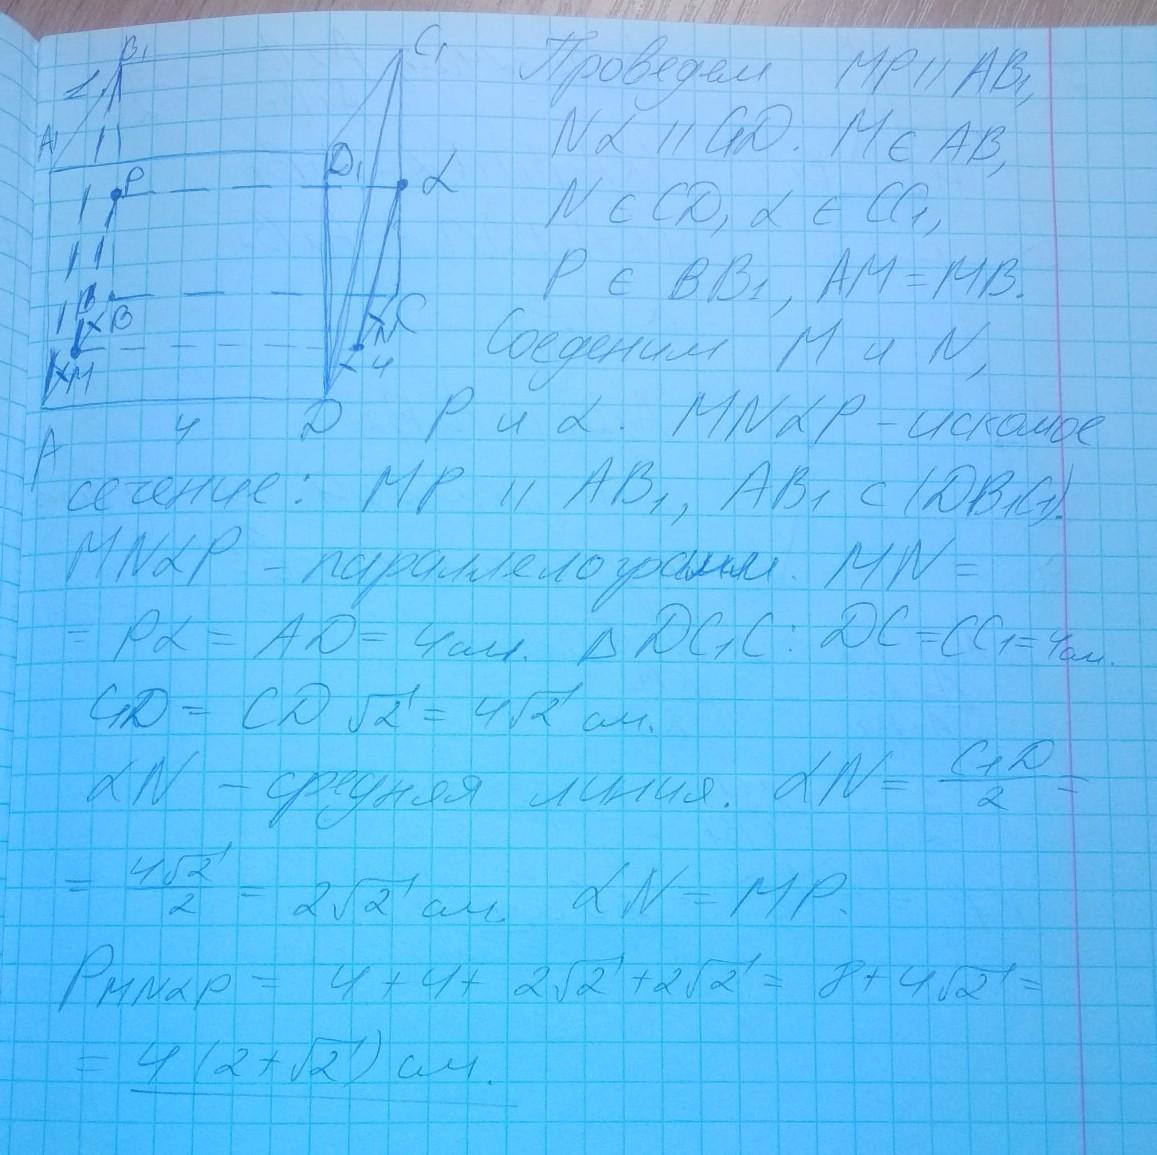 B₁
C₁
A₁
P
D₁
L
B
B
C
N
M
4
4
D
A
Проведем MP || AB₁,
NL || C₁D. M ∈ AB,
N ∈ CD, L ∈ CC₁,
P ∈ BB₁, AM = MB.
Соеденим M и N,
P и L. MNLP - искомое
сечение: MP || AB₁, AB₁ ⊂ (DB₁C₁).
MNLP - параллелограмм. MN =
= PL = AD = 4 см. Δ DC₁C: DC = CC₁ = 4 см.
C₁D = CD √2 = 4√2 см.
LN - средняя линия. LN = C₁D/2 =
= 4√2/2 = 2√2 см. LN = MP.
P MNLP = 4 + 4 + 2√2 + 2√2 = 8 + 4√2 =
= 4 (2 + √2) см.